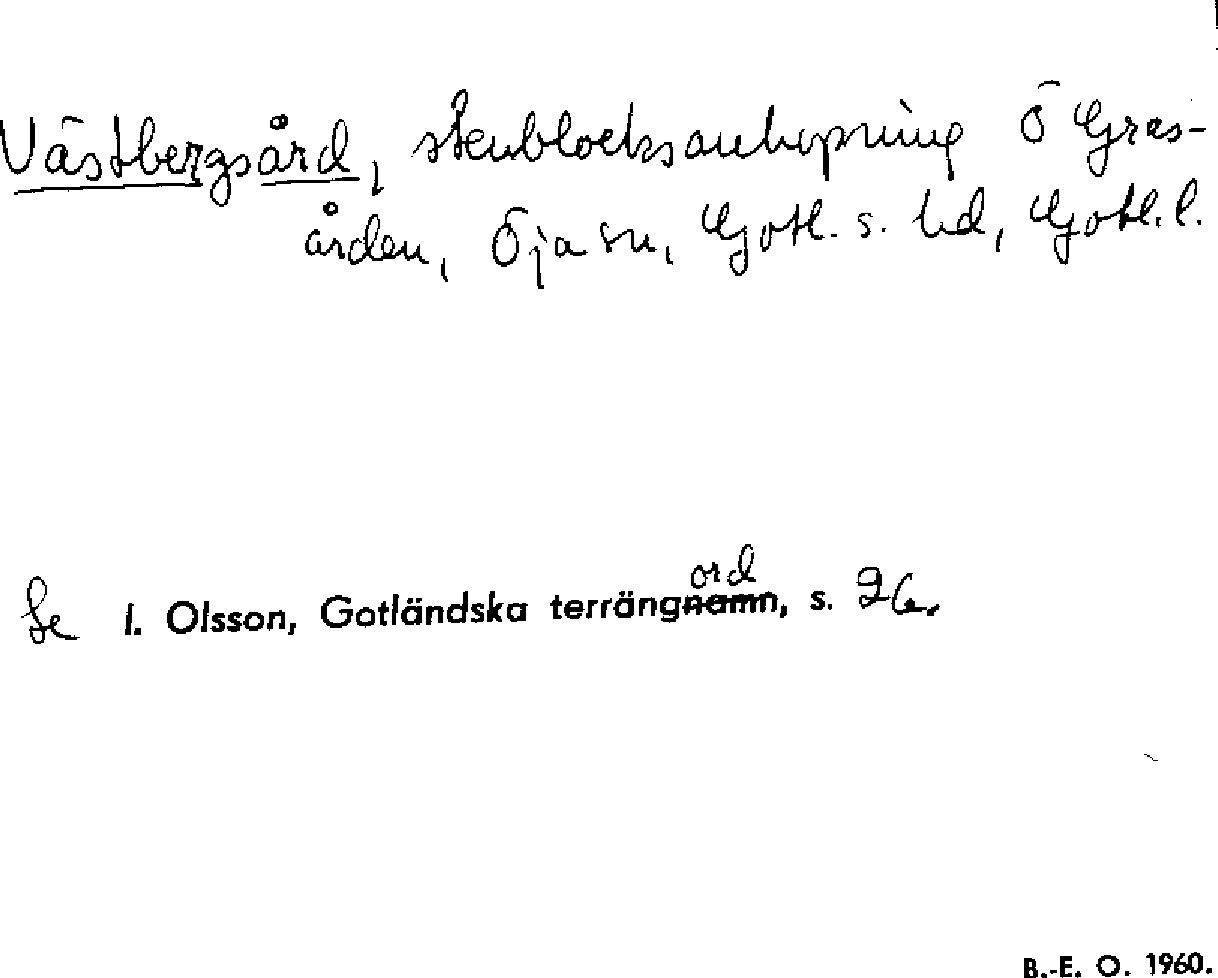 Västbergsård, stenblocksanhopning Ö Gras-
ården, Öja sn, Gotl. s. hd, Gotl. l.
Se I. Olsson, Gotländska terrängnamn, s. 26.
ord
B.-E. O. 1960.